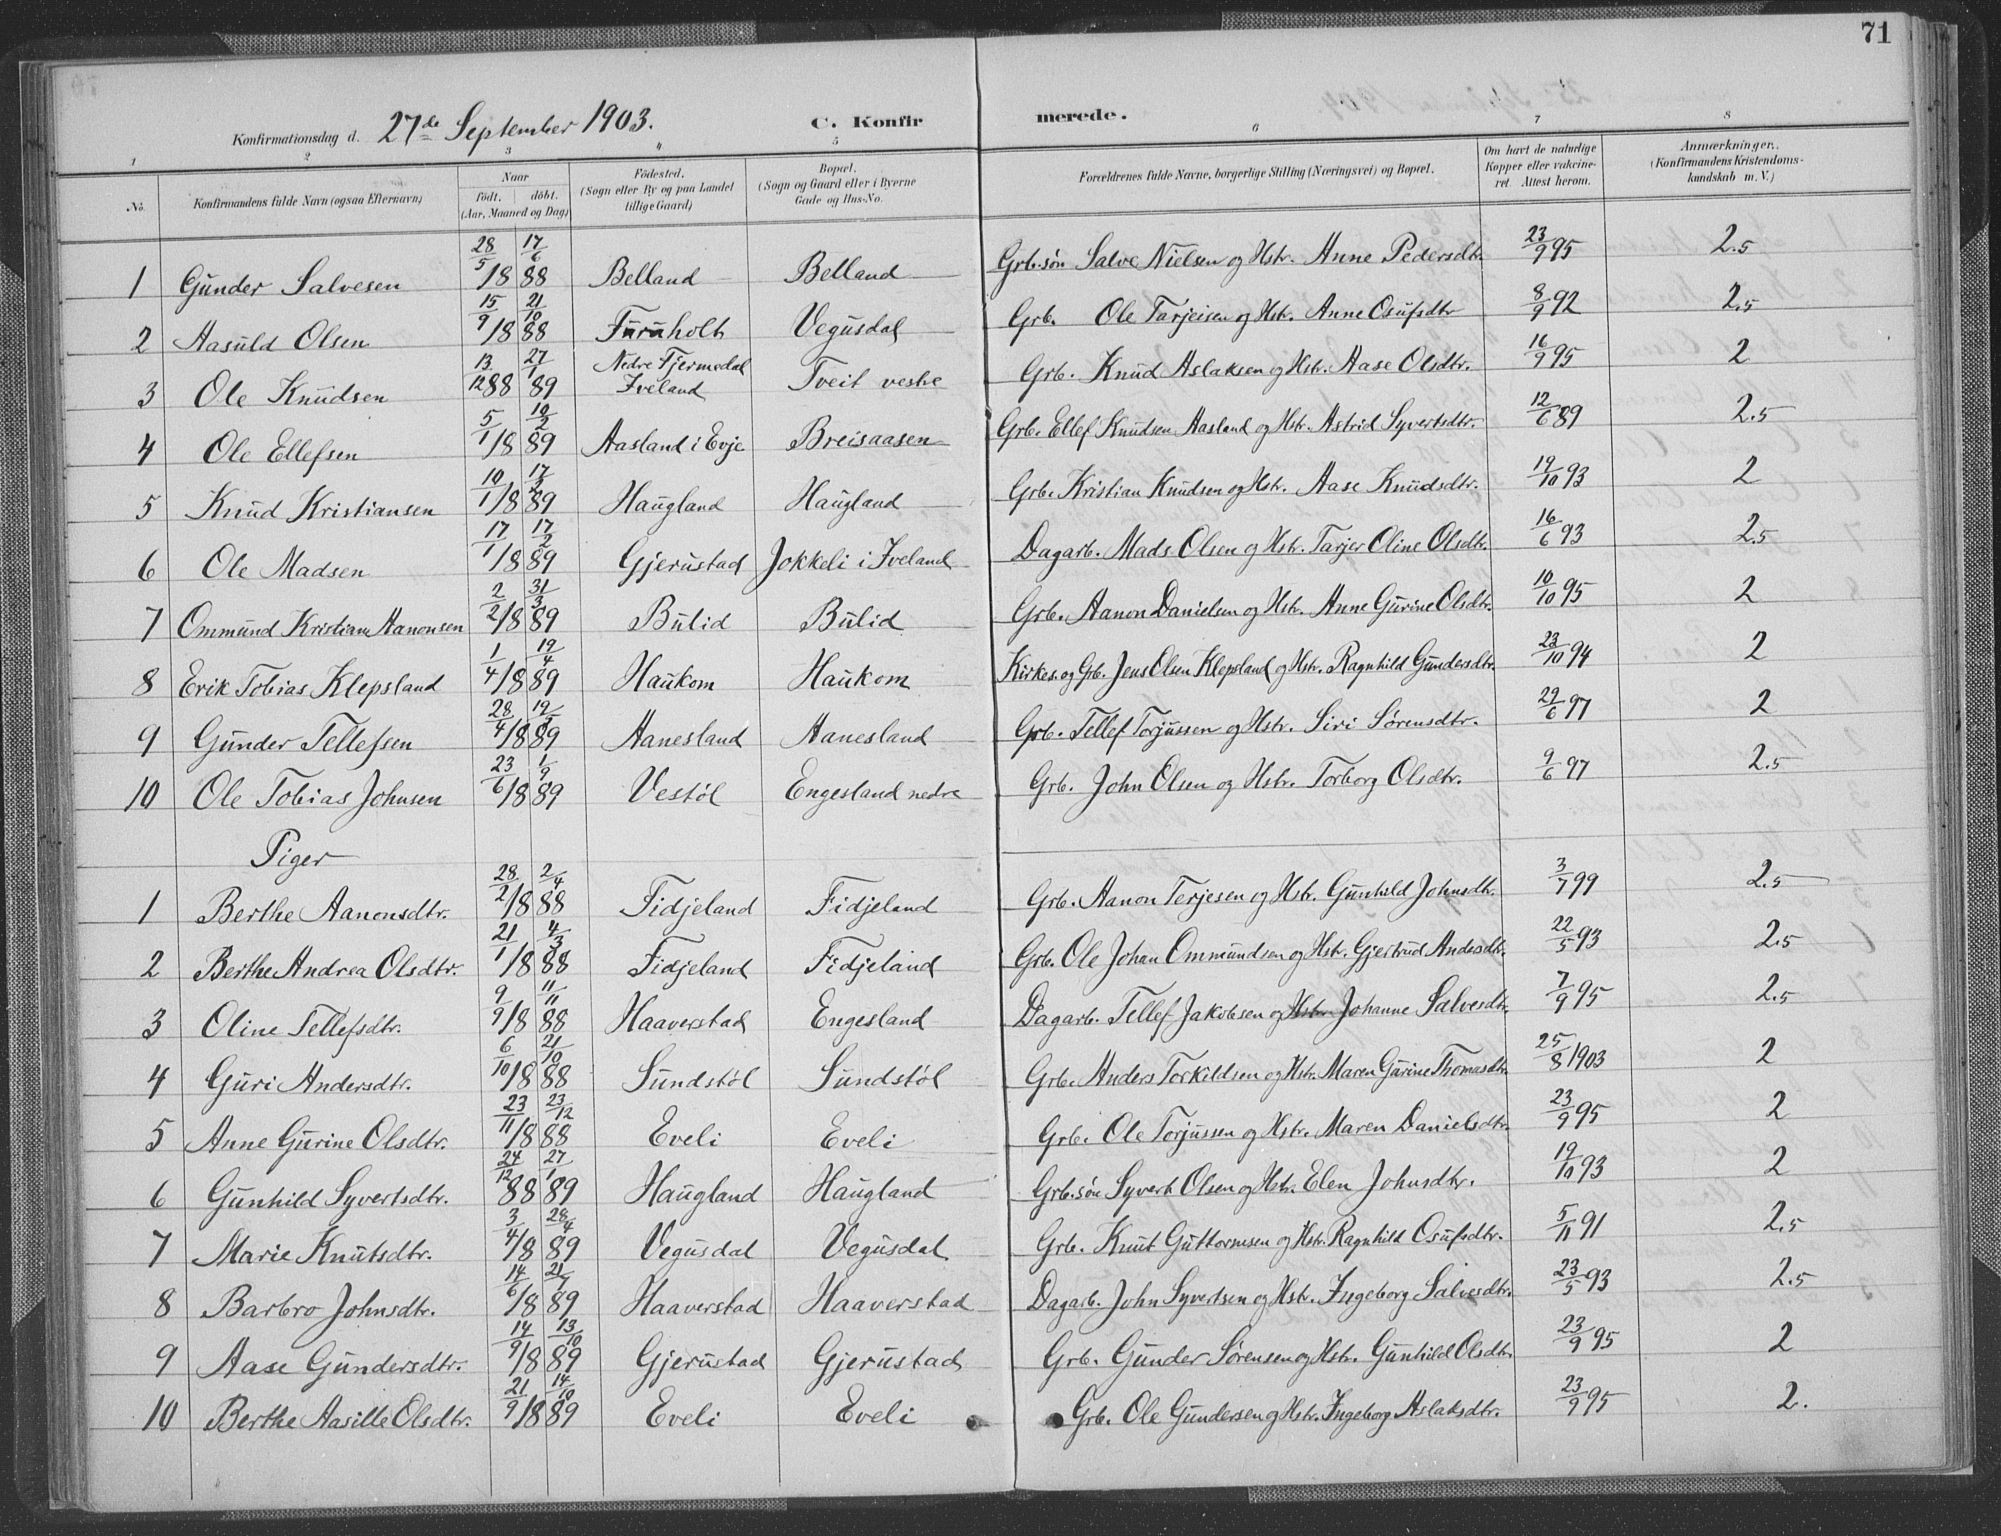 71
Konfirmationsdag d. 27de September 1903. C. Konfirmerede.
1 2 3 4 5 6 7 8
No. Konfirmandens fulde Navn (ogsaa Efternavn) Naar födt. döbt. (Aar, Maaned og Dag) Födested. (Sogn eller By og paa Landet tillige Gaard) Bopæl. (Sogn og Gaard eller i Byerne Gade og Hus-No. Forældrenes fulde Navne, borgerlige Stilling (Næringsvei) og Bopæl. Om havt de naturlige Kopper eller vakcineret. Attest herom. Anmærkninger. (Konfirmandens Kristendomskundskab m. V.)
1 Gunder Salvesen 28/5 1888 17/6 Belland Belland Grb.søn Salve Nielsen og Hstr. Anne Pedersdtr. 23/9 95 2.5
2 Aasuld Olsen 15/9 1888 21/10 Furuholt Vegusdal Grb. Ole Tarjeisen og Hstr. Anne Osufsdtr 8/9 92 2.5
3 Ole Knudsen 13/12 88 27/1 89 Nedre Fjermedal Iveland Tveit vestre Grb. Knud Aslaksen og Hstr. Aase Olsdtr. 16/9 95 2
4 Ole Ellefsen 5/1 1889 10/2 Aasland i Evje Breisaasen Grb. Ellef Knudsen Aasland og Hstr. Astrid Syvertsdtr. 12/6 89 2.5
5 Knud Kristiansen 10/1 1889 17/2 Haugland Haugland Grb. Kristian Knudsen og Hstr. Aase Knudsdtr. 19/10 93 2
6 Ole Madsen 17/1 1889 17/2 Gjerustad Jokkeli i Iveland Dagarb. Mads Olsen og Hstr. Tarjer Oline Olsdtr. 16/6 93 2.5
7 Ommund Kristian Aanonsen 2/2 1889 31/3 Bulid Bulid Grb. Aanon Danielsen og Hstr. Anne Gurine Olsdtr. 10/10 95 2
8 Erik Tobias Klepsland 1/4 1889 19/4 Haukom Haukom Kirkes. og Grb. Jens Olsen Klepsland og Hstr. Ragnhild Gundersdtr. 23/10 94 2
9 Gunder Tellefsen 28/4 1889 Aanesland Aanesland Grb. Tellef Torjussen og Hstr. Siri Sørensdtr. 29/6 97 2
10 Ole Tobias Johnsen 23/6 1889 1/9 Vestøl Engesland nedre Grb. John Olsen og Hstr. Torborg Olsdtr. 9/6 97 2.5
Piger
1 Berthe Aanonsdtr. 28/2 1888 2/4 Fidjeland Fidjeland Grb. Aanon Terjesen og Hstr. Gunhild Johnsdtr. 3/7 99 2.5
2 Berthe Andrea Olsdtr. 21/1 1888 4/3 Fidjeland Fidjeland Grb. Ole Johan Ommundsen og Hstr. Gjertrud Andersdtr. 22/5 93 2.5
3 Oline Tellefsdtr. 9/9 1888 11/11 Haaverstad Engesland Dagarb. Tellef Jakobsen og Hstr. Johanne Salvesdtr. 7/9 95 2.5
4 Guri Andersdtr. 6/10 1888 21/10 Sundstöl Sundstöl Grb. Anders Torkildsen og Hstr. Maren Gurine Thomasdtr. 25/8 1903 2
5 Anne Gurine Olsdtr. 23/11 1888 23/12 Eveli Eveli Grb. Ole Torjussen og Hstr. Maren Danielsdtr. 23/9 95 2
6 Gunhild Syvertsdtr. 24/12 88 27/1 89 Haugland Haugland Grb.søn Syvert Olsen og Hstr. Elen Johnsdtr. 19/10 93 2
7 Marie Knutsdtr. 3/4 1889 28/4 Vegusdal Vegusdal Grb. Knut Guttormsen og Hstr. Ragnhild Osufsdtr. 5/11 91 2.5
8 Barbro Johnsdtr. 14/6 1889 21/7 Haaverstad Haaverstad Dagarb. John Syvertsen og Hstr. Ingeborg Salvesdtr. 23/5 93 2.5
9 Aase Gundersdtr. 14/9 1889 13/10 Gjerustad Gjerustad Grb. Gunder Sørensen og Hstr. Gunhild Olsdtr. 23/9 95 2
10 Berthe Aasille Olsdtr. 21/9 1889 14/10 Eveli Eveli Grb. Ole Gundersen og Hstr. Ingeborg Aslaksdtr. 23/9 95 2.